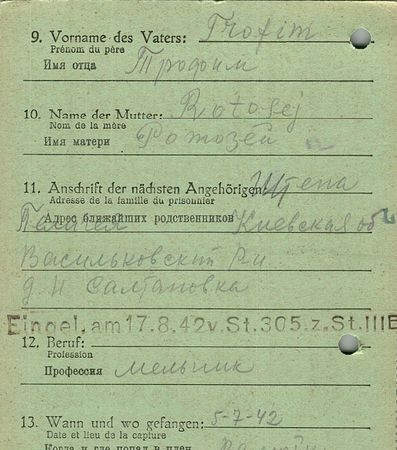 9. Vorname des Vaters: Trofim
Prénom du père
Имя отца Трофим
10. Name der Mutter: Rotosej
Nom de la mère
Имя матери Ротозей
11. Anschrift der nächsten Angehörigen:
Adresse de la famille du prisonnier
Адрес ближайших родственников Киевская об
Васильковский Р-н
д. Н Салтановка
Eingel. am 17.8.42 v. St. 305. z. St. III B
12. Beruf:
Profession
Профессия мельник
13. Wann und wo gefangen: 5-7-42
Date et lieu de la capture
Когда и где попал в плен